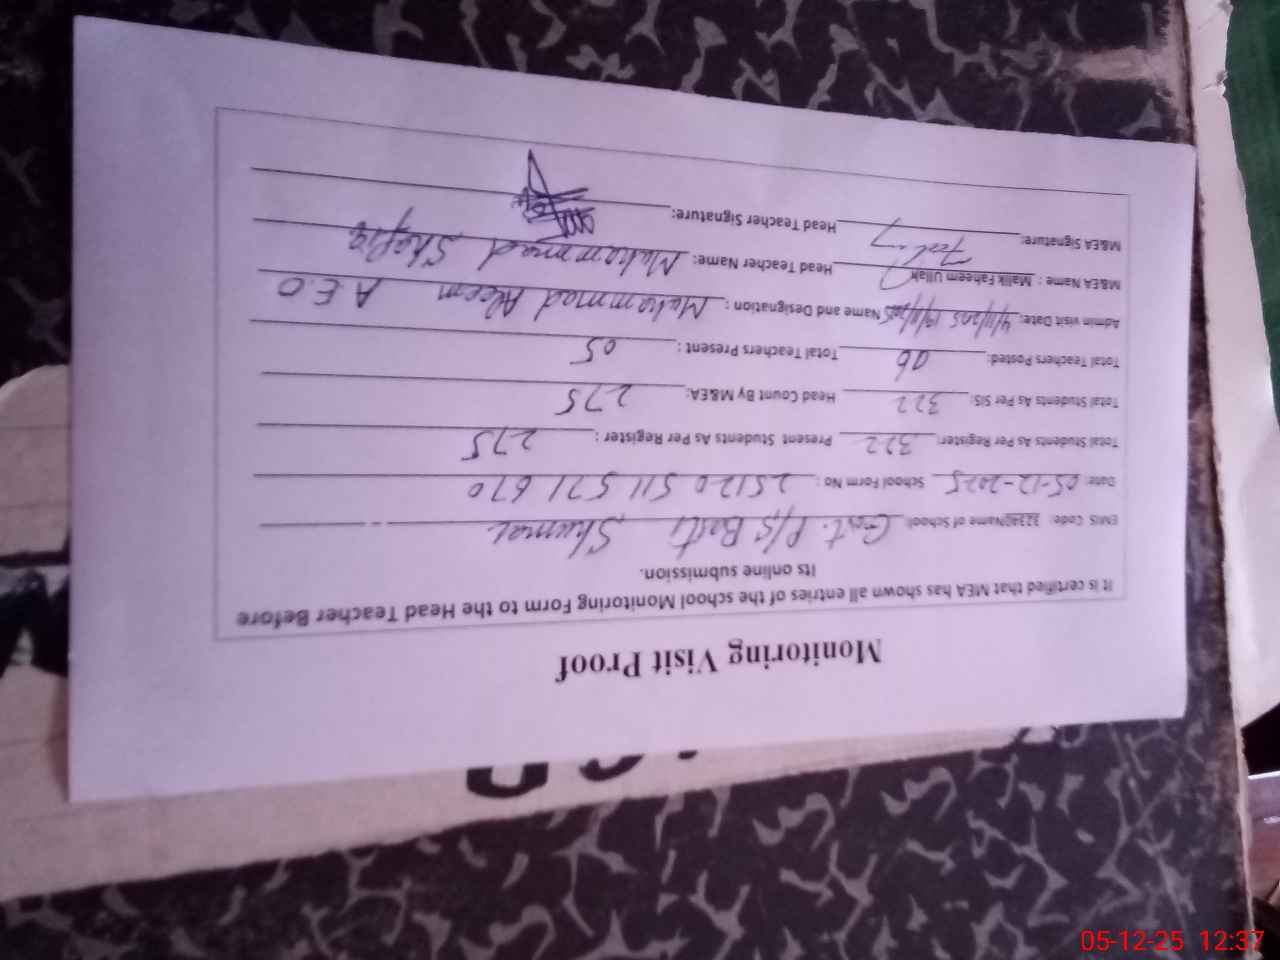 Monitoring Visit Proof
It is certified that MEA has shown all entries of the school Monitoring Form to the Head Teacher Before
Its online submission.
EMIS Code: Name of School: Govt. P/S Basti Shumal
Date: 05-12-2025 School Form No: 25120 511 571 670
Total Students As Per Register: 322 Present Students As Per Register: 275
Total Students As Per SIS: 322 Head Count By M&EA: 275
Total Teachers Posted: 06 Total Teachers Present: 05
Admin visit Date: Name and Designation: Muhammad Aleem A.E.O
M&EA Name: Malik Faheem Ullah Head Teacher Name: Muhammad Shafiq
M&EA Signature: Head Teacher Signature:
05-12-25 12:37